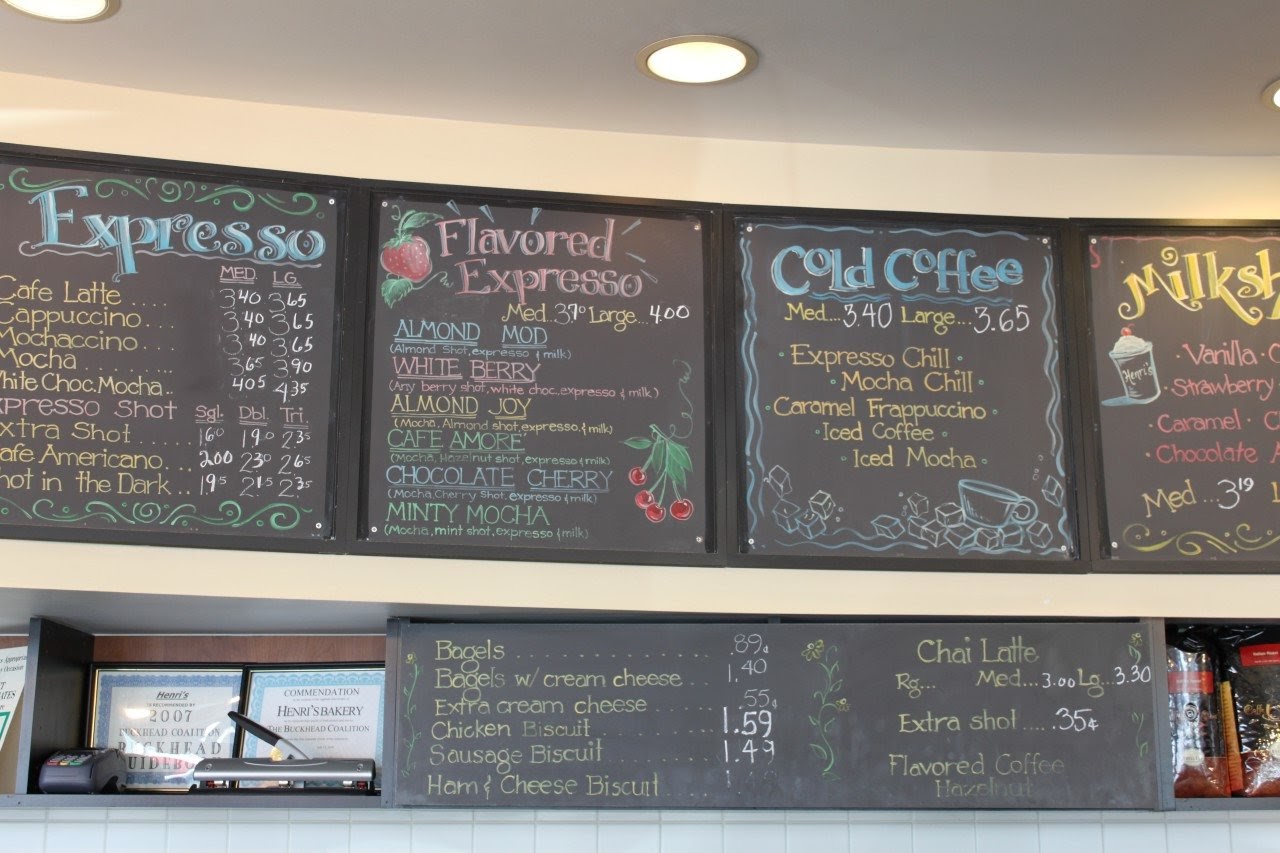 Expresso
MED. LG.
Cafe Latte .... 3.40 3.65
Cappuccino.... 3.40 3.65
Mochaccino.... 3.40 3.65
Mocha......... 3.65 3.90
White Choc.Mocha.. 4.05 4.35
Expresso Shot Sgl. Dbl. Tri.
Extra Shot....... 1.60 1.90 2.35
Cafe Americano.... 2.00 2.30 2.65
Shot in the Dark.. 1.95 2.15 2.35
Flavored
Expresso
Med...3.70 Large...4.00
ALMOND MOD
(Almond Shot,expresso & milk)
WHITE BERRY
(Any berry shot,white choc,expresso & milk)
ALMOND JOY
(Mocha, Almond shot,expresso,& milk)
CAFE AMORE'
(Mocha, Hazelnut shot, expresso & milk)
CHOCOLATE CHERRY
(Mocha,Cherry Shot,expresso & milk)
MINTY MOCHA
(Mocha,mint shot,expresso & milk)
Cold Coffee
Med...3.40 Large...3.65
Expresso Chill
Mocha Chill
Caramel Frappuccino
Iced Coffee
Iced Mocha
Milksh
Henri's
Vanilla
Strawberry
Caramel
Chocolate
Med...3.19
Bagels .................. .89¢
Bagels w/ cream cheese.. 1.40
Extra cream cheese ...... .55¢
Chicken Biscuit ......... 1.59
Sausage Biscuit ......... 1.49
Ham & Cheese Biscuit....
Chai Latte
Rg... Med...3.00 Lg...3.30
Extra shot.... .35¢
Flavored Coffee
Hazelnut
Henri's
IS RECOMMENDED BY
2007
BUCKHEAD COALITION
BUCKHEAD
GUIDEBO
COMMENDATION
HENRI'S BAKERY
THE BUCKHEAD COALITION